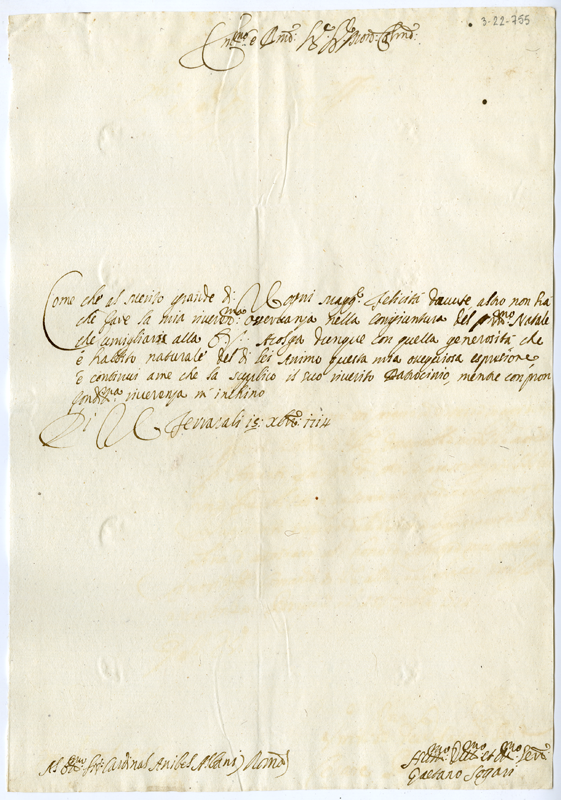 3-22-755
Em.mo e R.mo Sig.r Sig.r Pron: Col.mo
Come che al merito grande di V.E. ogni magg.e felicità dovute altro non hà
che fare la mia river.ma osservanza nella congiuntura del pr.mo Natale
che umigliarsi alla Accolga dunque con quella generosità che
è habito naturale del di lei animo questa mia ossequiosa espressione,
e continui a me che la supplico il suo riverito Patrocinio, mentre con pron
fond.ma riverenza m'inchino
Di V.E. 15: Xbre 1714
Al Sig.r Cardinal Anibal Albani) Roma)
Hum.mo Dev.mo et Obl.mo Ser.e
Gaetano